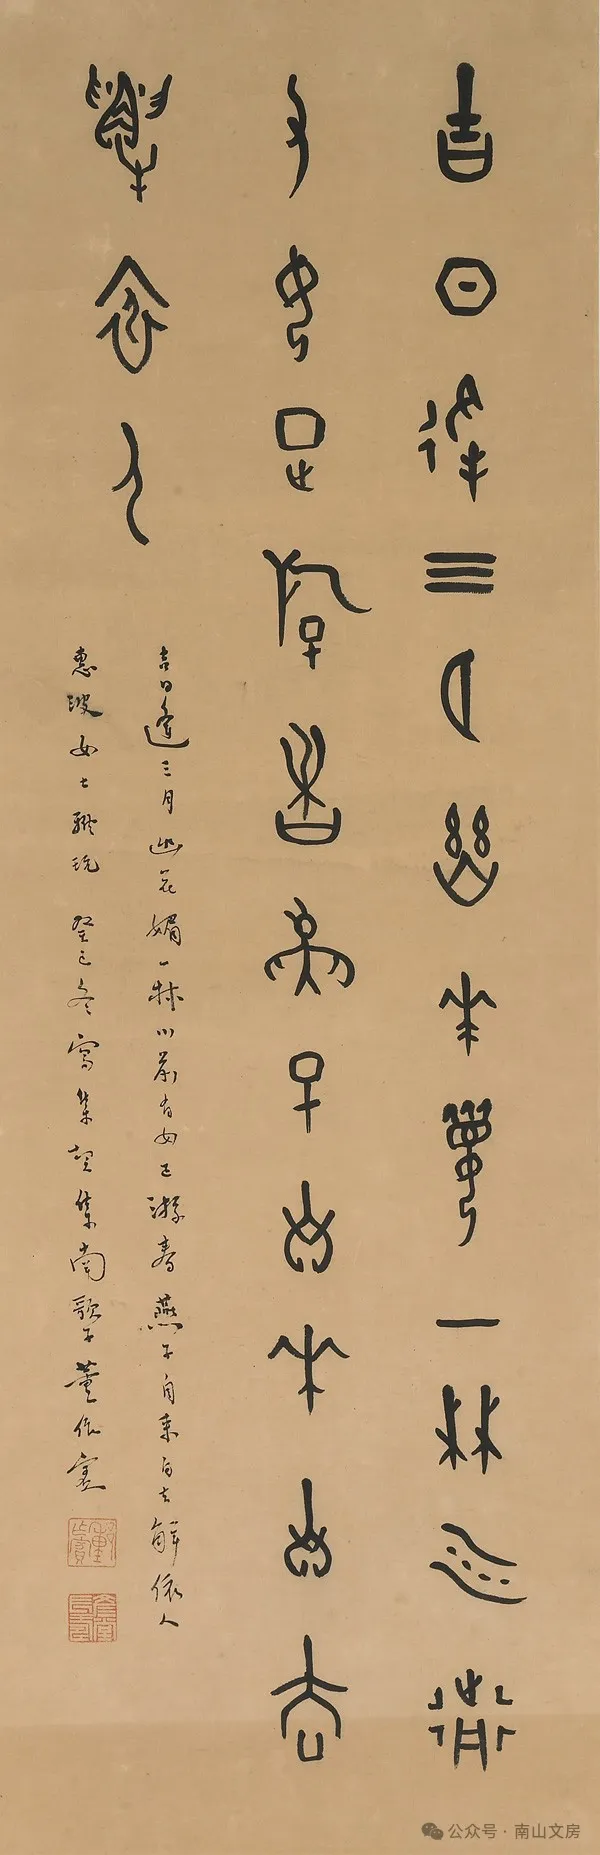 吉日逢三月幽花媚一林川前
有女正游春燕子自来自去
解依人
吉日逢三月幽花媚一林川前有女正游春燕子自来自去解依人
惠波女士雅玩 癸巳冬写集契集南歌子 董作宾
公众号·南山文房